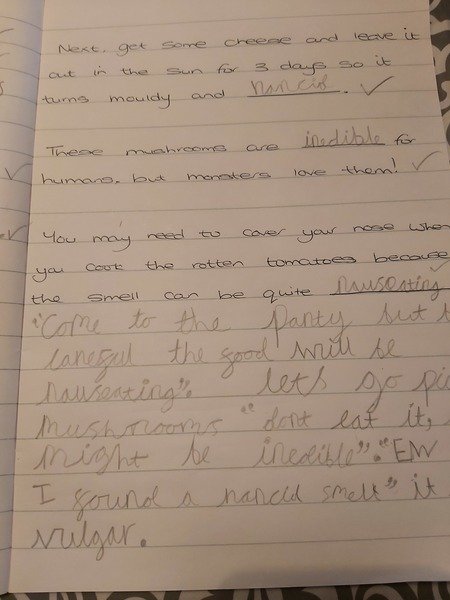 Next, get some cheese and leave it
out in the sun for 3 days so it
turns mouldy and rancid.
These mushrooms are inedible for
humans, but monsters love them!
You may need to cover your nose when
you cook the rotten tomatoes because
the smell can be quite nauseating
"Come to the party but
careful the food will be
nauseating". lets go
mushrooms "dont eat it,
might be inedible". "EW
I found a rancid smell" it
vulgar.